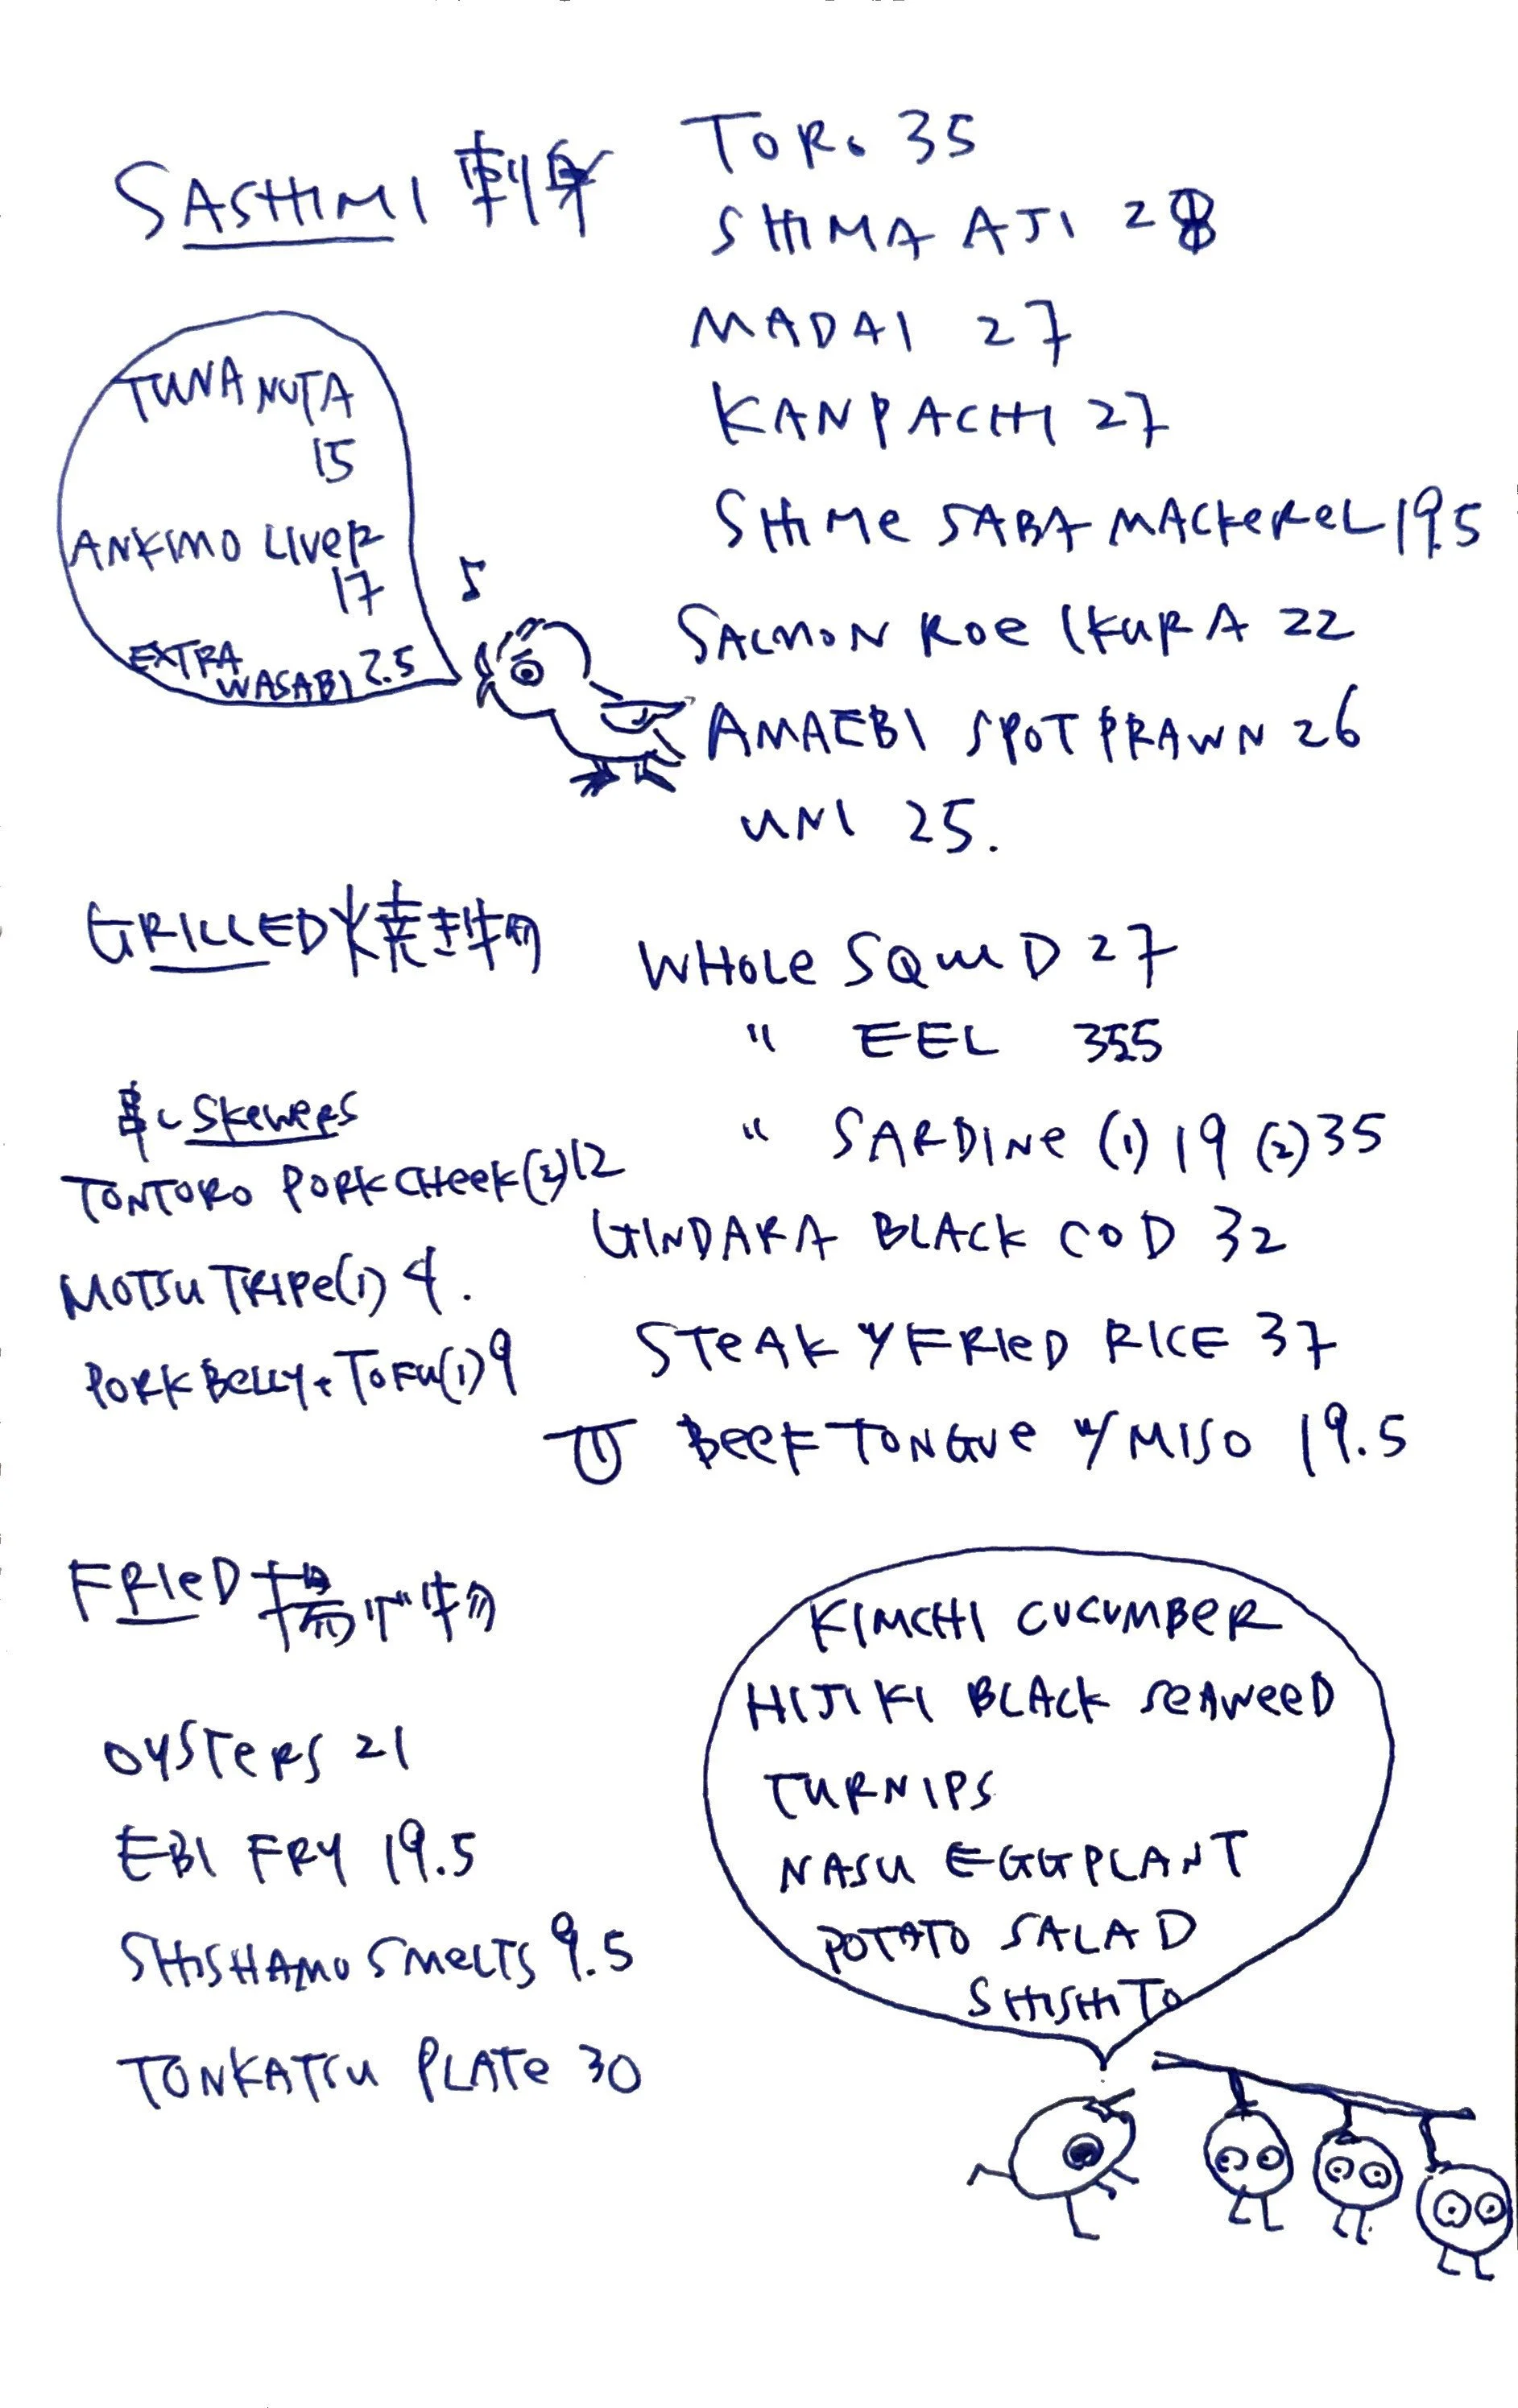 SASHIMI 刺身
TORO 35
SHIMA AJI 28
MADAI 27
KANPACHI 27
SHIMe SABA MACKeReL 19.5
SALMON ROe IKURA 22
AMAEBI SPOT PRAWN 26
UNI 25.
TUNA NUTA
15
ANKIMO LIVeR
17
EXTRA
WASABI 2.5
GRILLED 焼き物
WHOLe SQUID 27
" EEL 35
" SARDINe (1) 19 (2) 35
GINDARA BLACK COD 32
STeAK w/ FRIeD RICE 37
BeeF TONGUe w/ MISO 19.5
串し SKeweRS
TONTORO PORK CHeeK (2) 12
MOTSU TRIPe (1) 4.
PORK BeLLY + TOFU (1) 9
FRIeD 揚げ物
OYSTeRS 21
EBI FRY 19.5
SHISHAMO SMeLTS 9.5
TONKATSU PLATe 30
KIMCHI CUCUMBeR
HIJIKI BLACK SeAWeeD
TURNIPS
NASU EGGPLANT
POTATO SALAD
SHISHITO